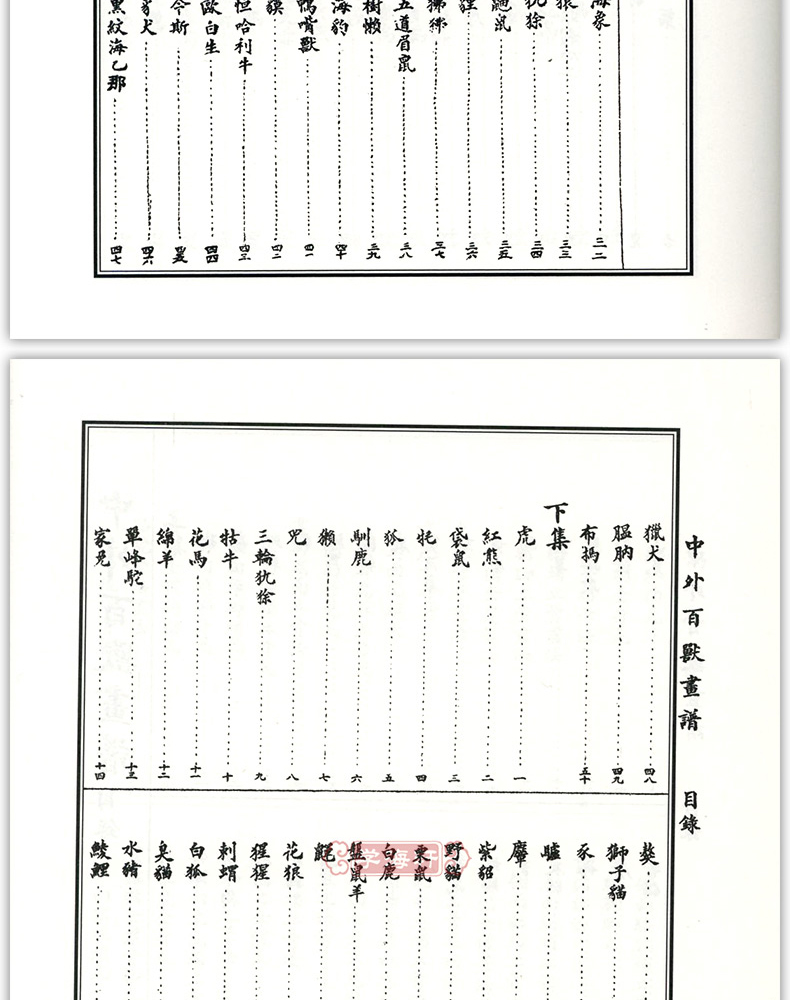 海象 三二
猿 三三
犰狳 三四
鼠 三五
三六
狒狒 三七
五道眉鼠 三八
樹懶 三九
海豹 四十
鴨嘴獸 四一
貘 四二
怛哈利牛 四三
歐白生 四四
今斯 四五
豸犬 四六
黑紋海乙那 四七
中外百獸畫譜 目錄
獵犬 四八
膃肭 四九
布獁 五十
下集
虎 一
紅熊 二
袋鼠 三
牦 四
狐 五
馴鹿 六
獺 七
兕 八
三輪犰狳 九
牯牛 十
花馬 十一
綿羊 十二
單峰駝 十三
家兔 十四
獒
獅子貓
豕
驢
麞
紫貂
野貓
栗鼠
白鹿
盤鼠羊
花狼
猩猩
刺蝟
白狐
臭貓
水豬
鯪鯉
学海轩